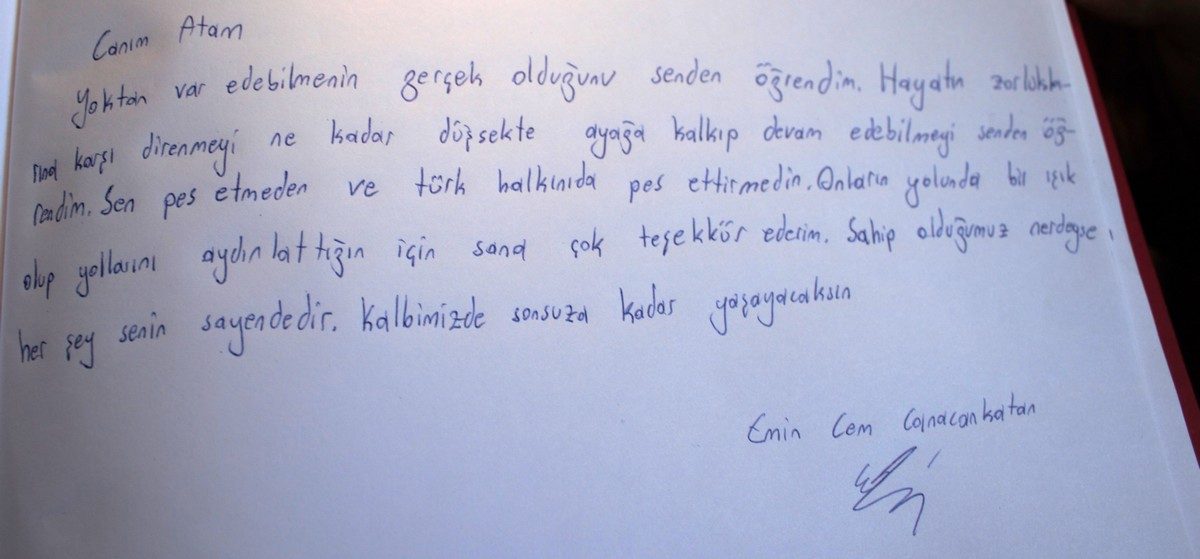 Canım Atam
Yoktan var edebilmenin gerçek olduğunu senden öğrendim. Hayatın zorlukla-
rına karşı direnmeyi ne kadar düşsekte ayağa kalkıp devam edebilmeyi senden öğ-
rendim. Sen pes etmeden ve türk halkınıda pes ettirmedin. Onların yolunda bir ışık
olup yollarını aydınlattığın için sana çok teşekkür ederim. Sahip olduğumuz nerdeyse
her şey senin sayendedir. Kalbimizde sonsuza kadar yaşayacaksın
Emin Cem